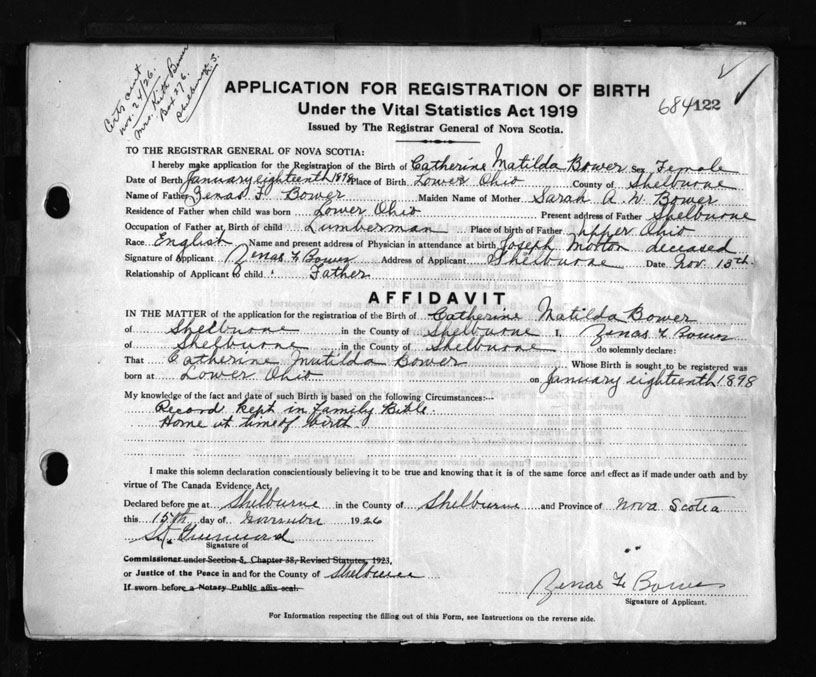 Certs sent
Nov. 24/26.
Mrs. Keith Bower
Box 276.
Shelburne
N.S.
APPLICATION FOR REGISTRATION OF BIRTH
Under the Vital Statistics Act 1919
684122
Issued by The Registrar General of Nova Scotia.
TO THE REGISTRAR GENERAL OF NOVA SCOTIA:
I hereby make application for the Registration of the Birth of Catherine Matilda Bower Sex Female
Date of Berth January eighteenth 1898 Place of Birth Lower Ohio County of Shelburne
Name of Father Zenas F. Bower Maiden Name of Mother Sarah A. N. Bower
Residence of Father when child was born Lower Ohio Present address of Father Shelburne
Occupation of Father at Birth of child Lumberman Place of birth of Father Upper Ohio
Race English Name and present address of Physician in attendance at birth Joseph Morton deceased
Signature of Applicant Zenas F. Bower Address of Applicant Shelburne Date Nov. 15th
Relationship of Applicant to child Father
AFFIDAVIT
IN THE MATTER of the application for the registration of the Birth of Catherine Matilda Bower
of Shelburne in the County of Shelburne I, Zenas F. Bower
of Shelburne in the County of Shelburne do solemnly declare:
That Catherine Matilda Bower Whose Birth is sought to be registered was
born at Lower Ohio on January eighteenth 1898
My knowledge of the fact and date of such Birth is based on the following Circumstances:--
Record kept in family Bible.
Home at time of birth
I make this solemn declaration conscientiously believing it to be true and knowing that it is of the same force and effect as if made under oath and by
virtue of The Canada Evidence Act,
Declared before me at Shelburne in the County of Shelburne and Province of Nova Scotia
this 15th day of November 1926
Signature of
Commissioner under Section 5, Chapter 38, Revised Statutes, 1923,
or Justice of the Peace in and for the County of Shelburne
If sworn before a Notary Public affix seal.
Zenas F. Bower
Signature of Applicant.
For Information respecting the filling out of this Form, see Instructions on the reverse side.